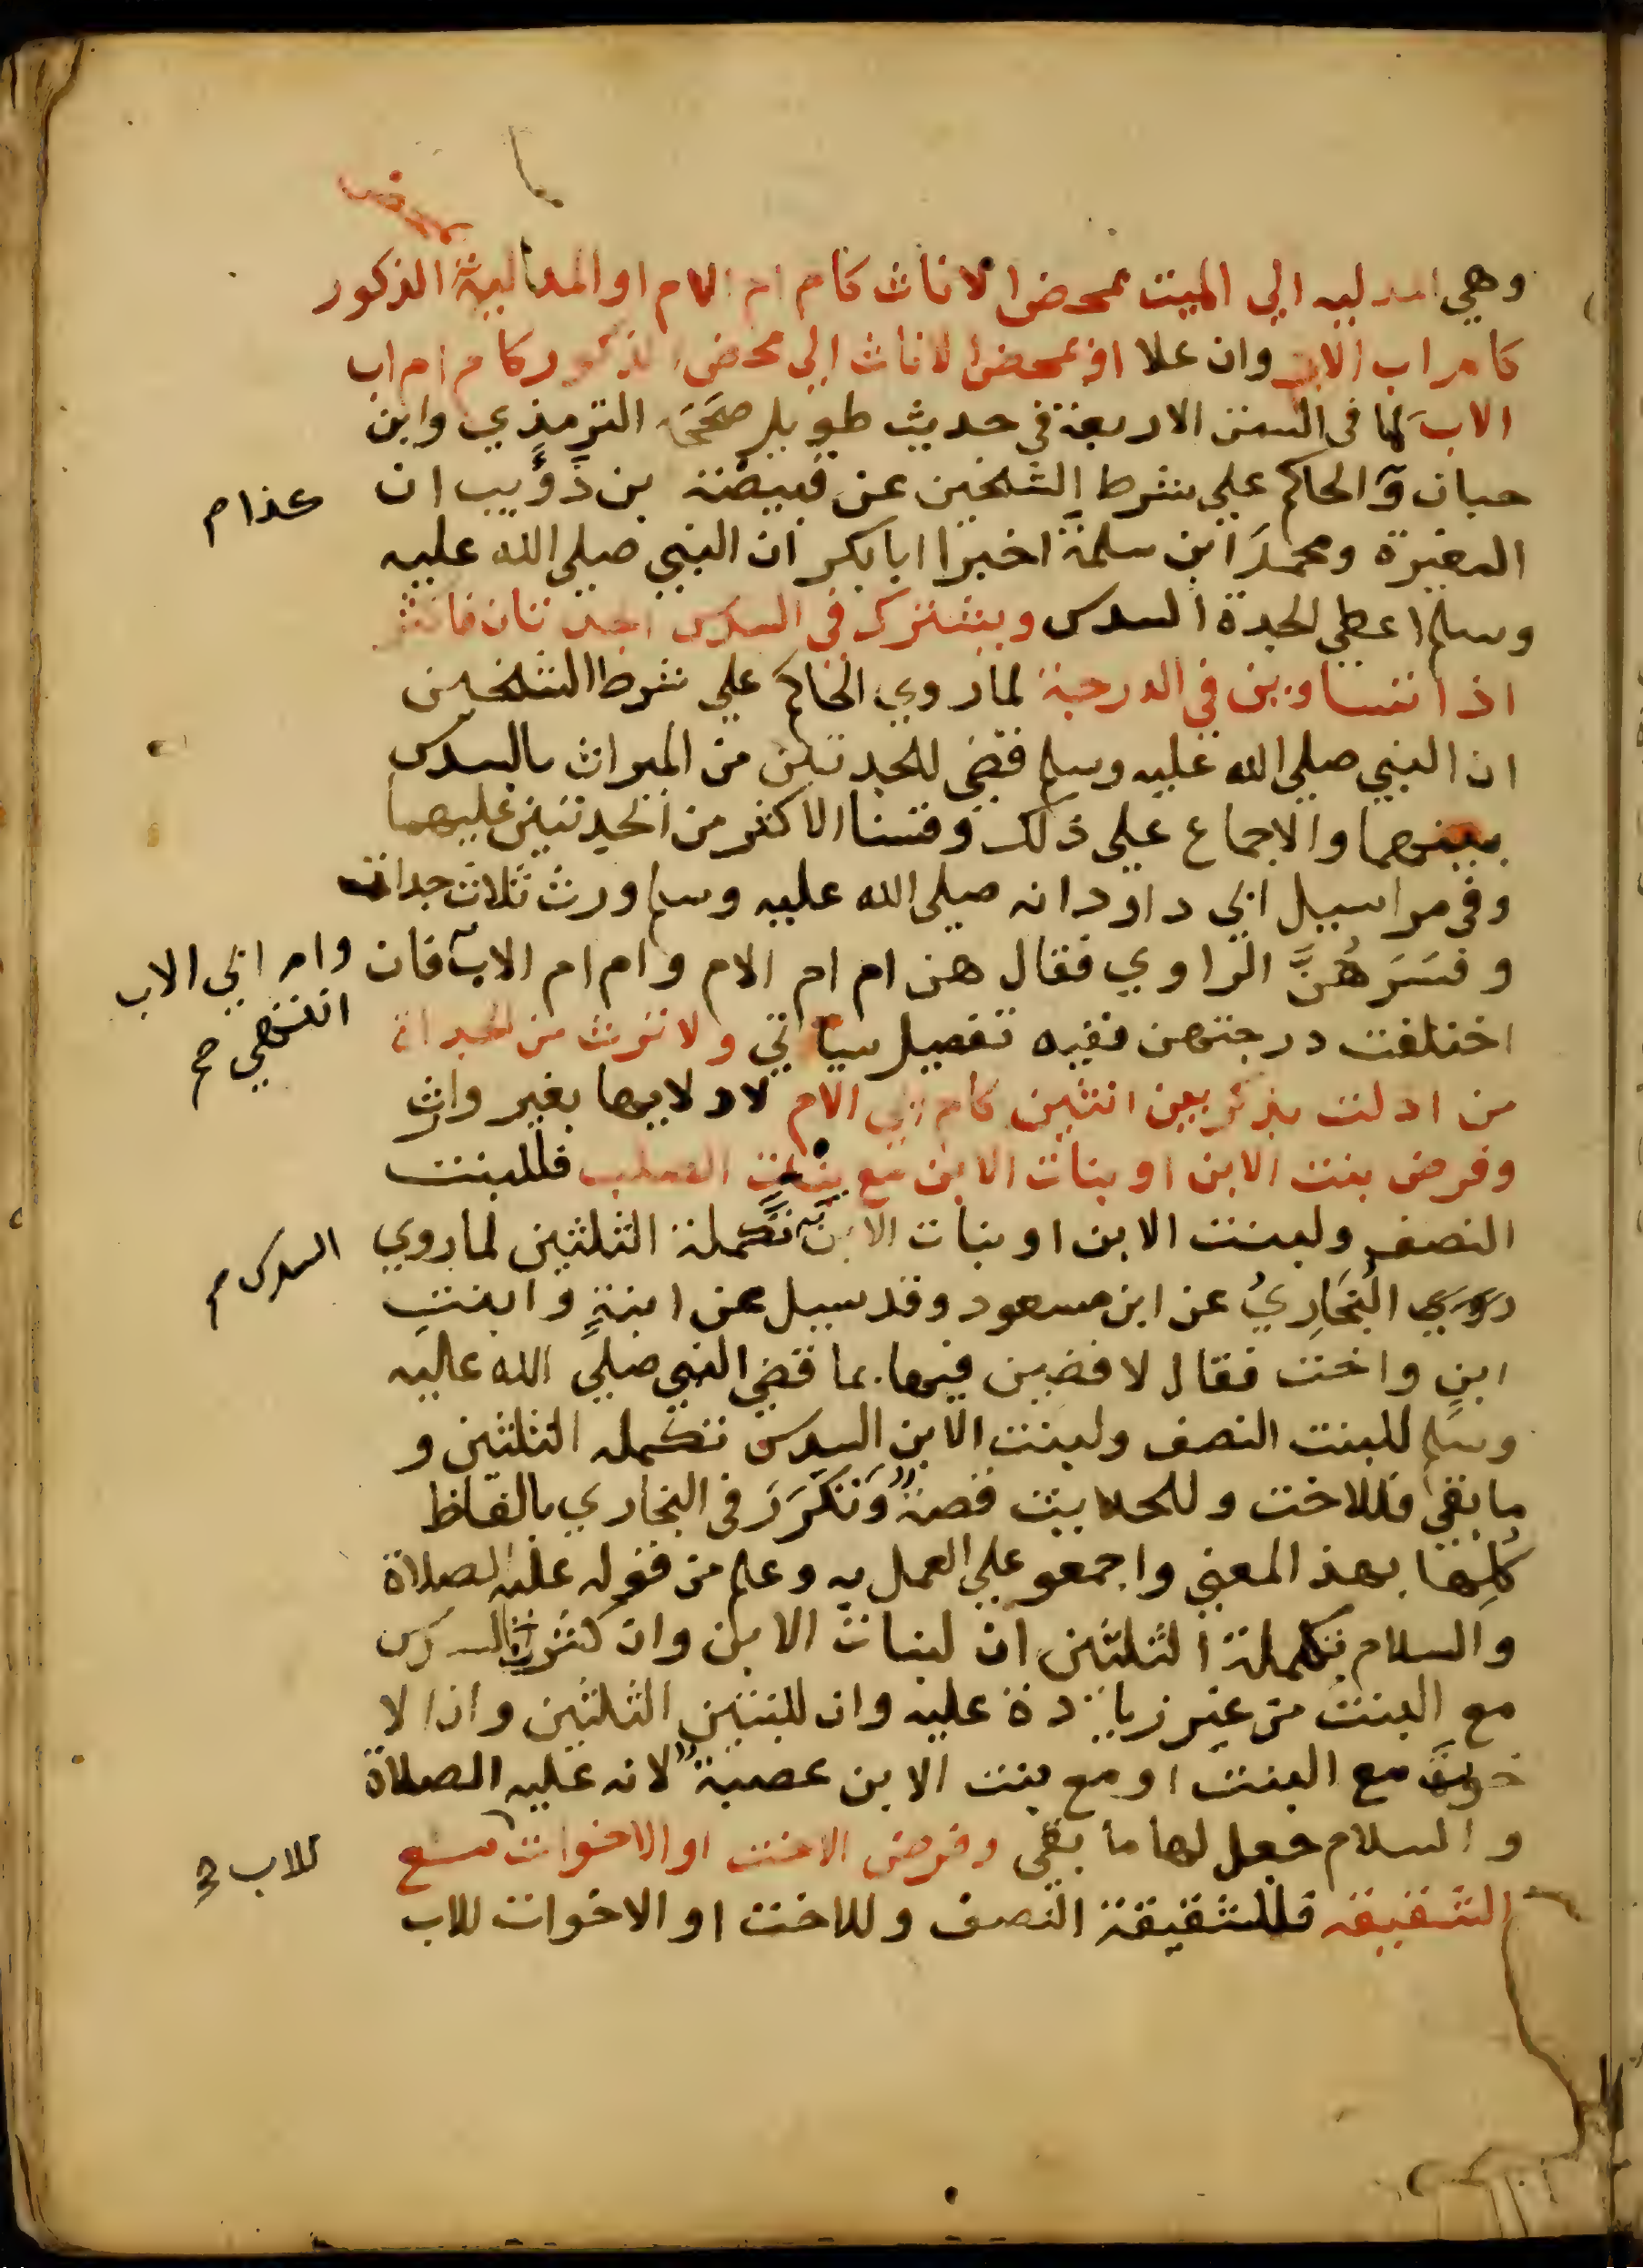 وهي المدليه الي الميت بمحض الاناث كام ام الام او المدلية الذكور
كام اب الاب وان علا او بمحض الاناث الي محض الذكور كام ام اب
الاب لما في السنن الاربعة في حديث طويل صححه الترمذي وابن
حبان والحاكم علي شرط الشيخين عن قبيصة بن ذؤيب ان
عندام
المغيرة ومحمد ابن سلمة اخبرا ابا بكر ان النبي صلي الله عليه
وسلم اعطي الجدة السدس ويشترك في السدس الجدتان فاكثر
اذا تساوين في الدرجة لما روي الحاكم علي شرط الشيخين
ان النبي صلي الله عليه وسلم قضي للجدتين من الميراث بالسدس
بينهما والاجماع علي ذلك وقسنا الاكثر من الجدتين عليهما
وفي مراسيل ابي داود انه صلي الله عليه وسلم ورث ثلاث جدات
وفسرهن الراوي فقال هن ام ام الام وام ام الاب فان
وام ابي الاب
انتهي صح
اختلفت درجتهن ففيه تفصيل سياتي ولا ترث من الجدات
من ادلت بذكر بين انثيين كام ابي الام لادلايها بغير وارث
وفرض بنت الابن او بنات الابن مع بنت الصلب فللبنت
النصف ولبنت الابن او بنات الابن تكملة الثلثين لما روي
السدس م
روي البخاري عن ابن مسعود وقد سيل عن ابنة وابنت
ابن واخت فقال لاقضين فيها بما قضي النبي صلي الله عليه
وسلم للبنت النصف ولبنت الابن السدس تكمله الثلثين و
ما بقي فللاخت وللحديث قصة وتكرر في البخاري بالفاظ
كلها بهذ المعني واجمعو علي العمل به وعلم من قوله عليه الصلاة
والسلام تكملة الثلثين ان لبنات الابن وان كثرن السدس
مع البنت من غير زيادة عليه وان للبنتين الثلثين وان الا
خوات مع البنت او مع بنت الابن عصبة لانه عليه الصلاة
والسلام جعل لها ما بقي وفرض الاخت او الاخوات مع
للاب
الشقيقة فللشقيقة النصف وللاخت او الاخوات للاب